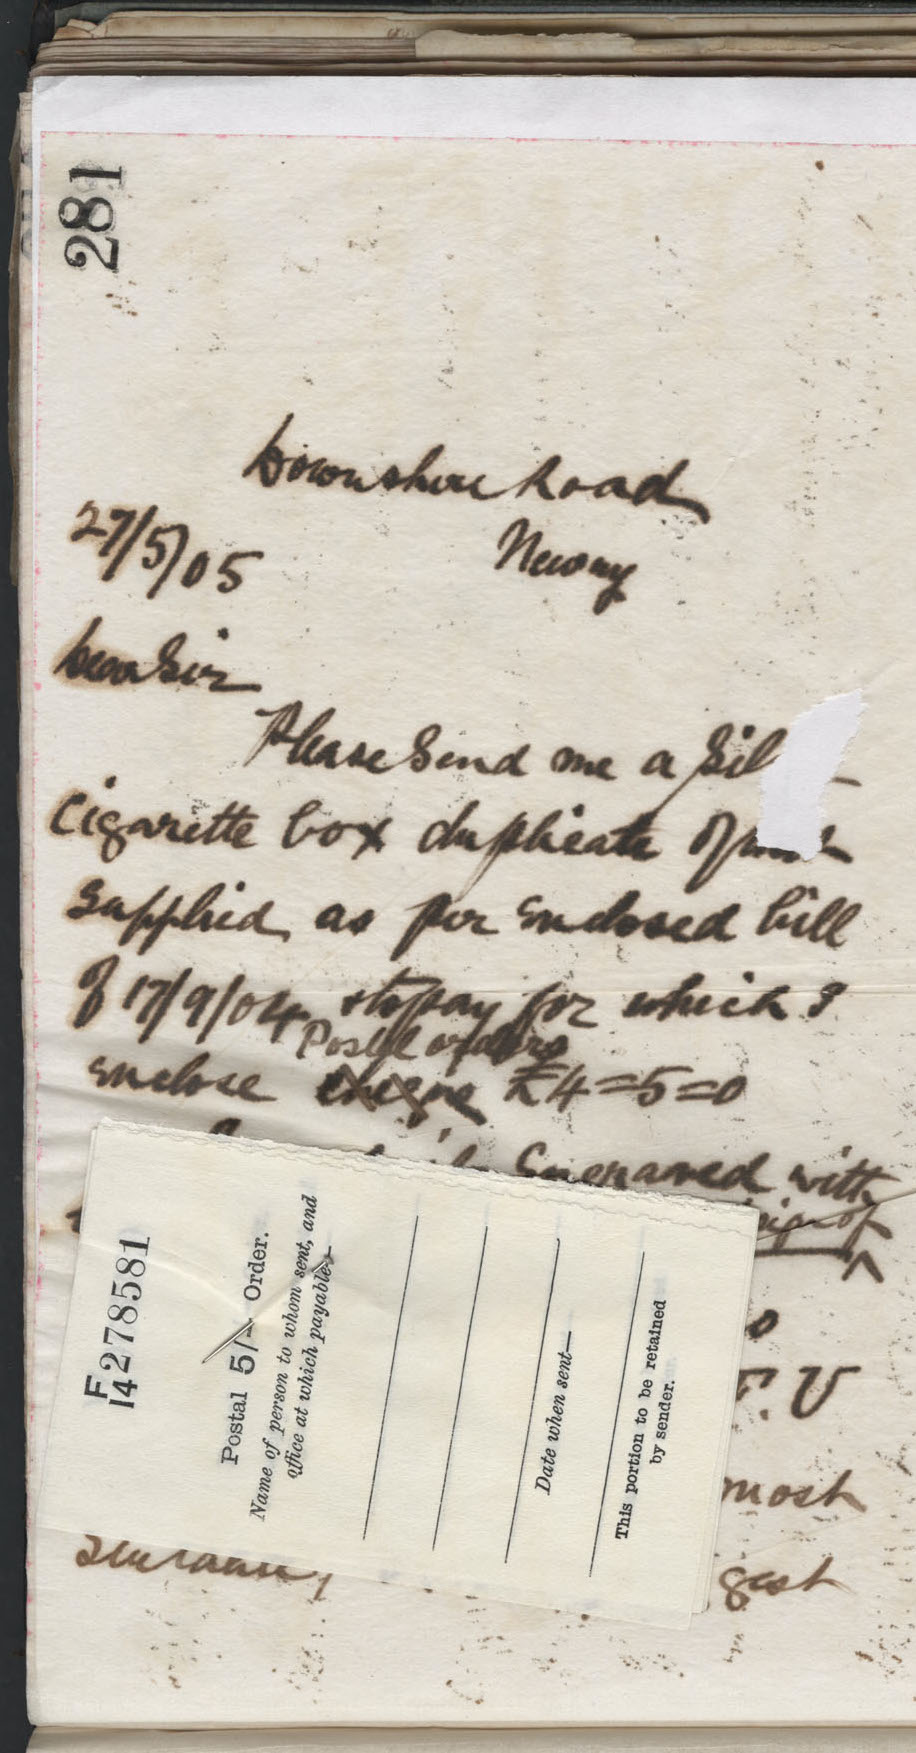 281
Downshire Road
Newry
27/5/05
Dear Sir
Please Send me a Sil
Cigarette box duplicate of
Supplied as per enclosed bill
of 17/9/04 for which I
Postal orders
enclose cheque £4=5=0
Engraved with
sign of
F. V
most
gest
F
14 278581
Postal 5/- Order.
Name of person to whom sent, and
office at which payable—
Date when sent—
This portion to be retained
by sender.